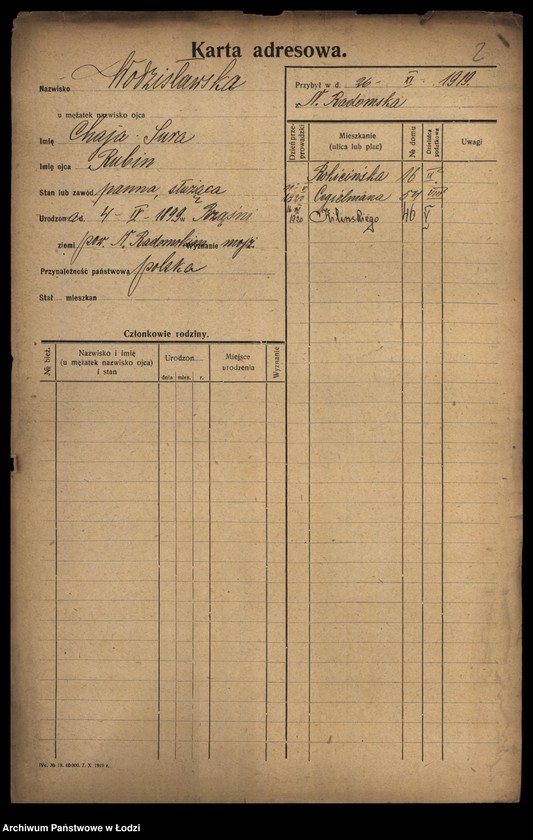 Karta adresowa.
2
Nazwisko Wodzisławska
u mężatek nazwisko ojca
Imię Chaja-Sura
Imię ojca Rubin
Stan lub zawód panna, służąca
Urodzona 4-IX-1899
ziemi pow. N. Radomskiego Wyznanie mojż.
Przynależność państwowa polska
Stał mieszkan
Przybył w d. 26-XI-1919.
z N. Radomska
Dzień przeprowadzki
Mieszkanie (ulica lub plac)
№ domu
Dzielnica podatkowa
Uwagi
16 II
Cegielniana 54 VIII
1920 Kilińskiego 46 V
Członkowie rodziny.
№ bież.
Nazwisko i imię
(u mężatek nazwisko ojca)
i stan
Urodzon
dnia mies. r.
Miejsce
urodzenia
Wyznanie
Archiwum Państwowe w Łodzi